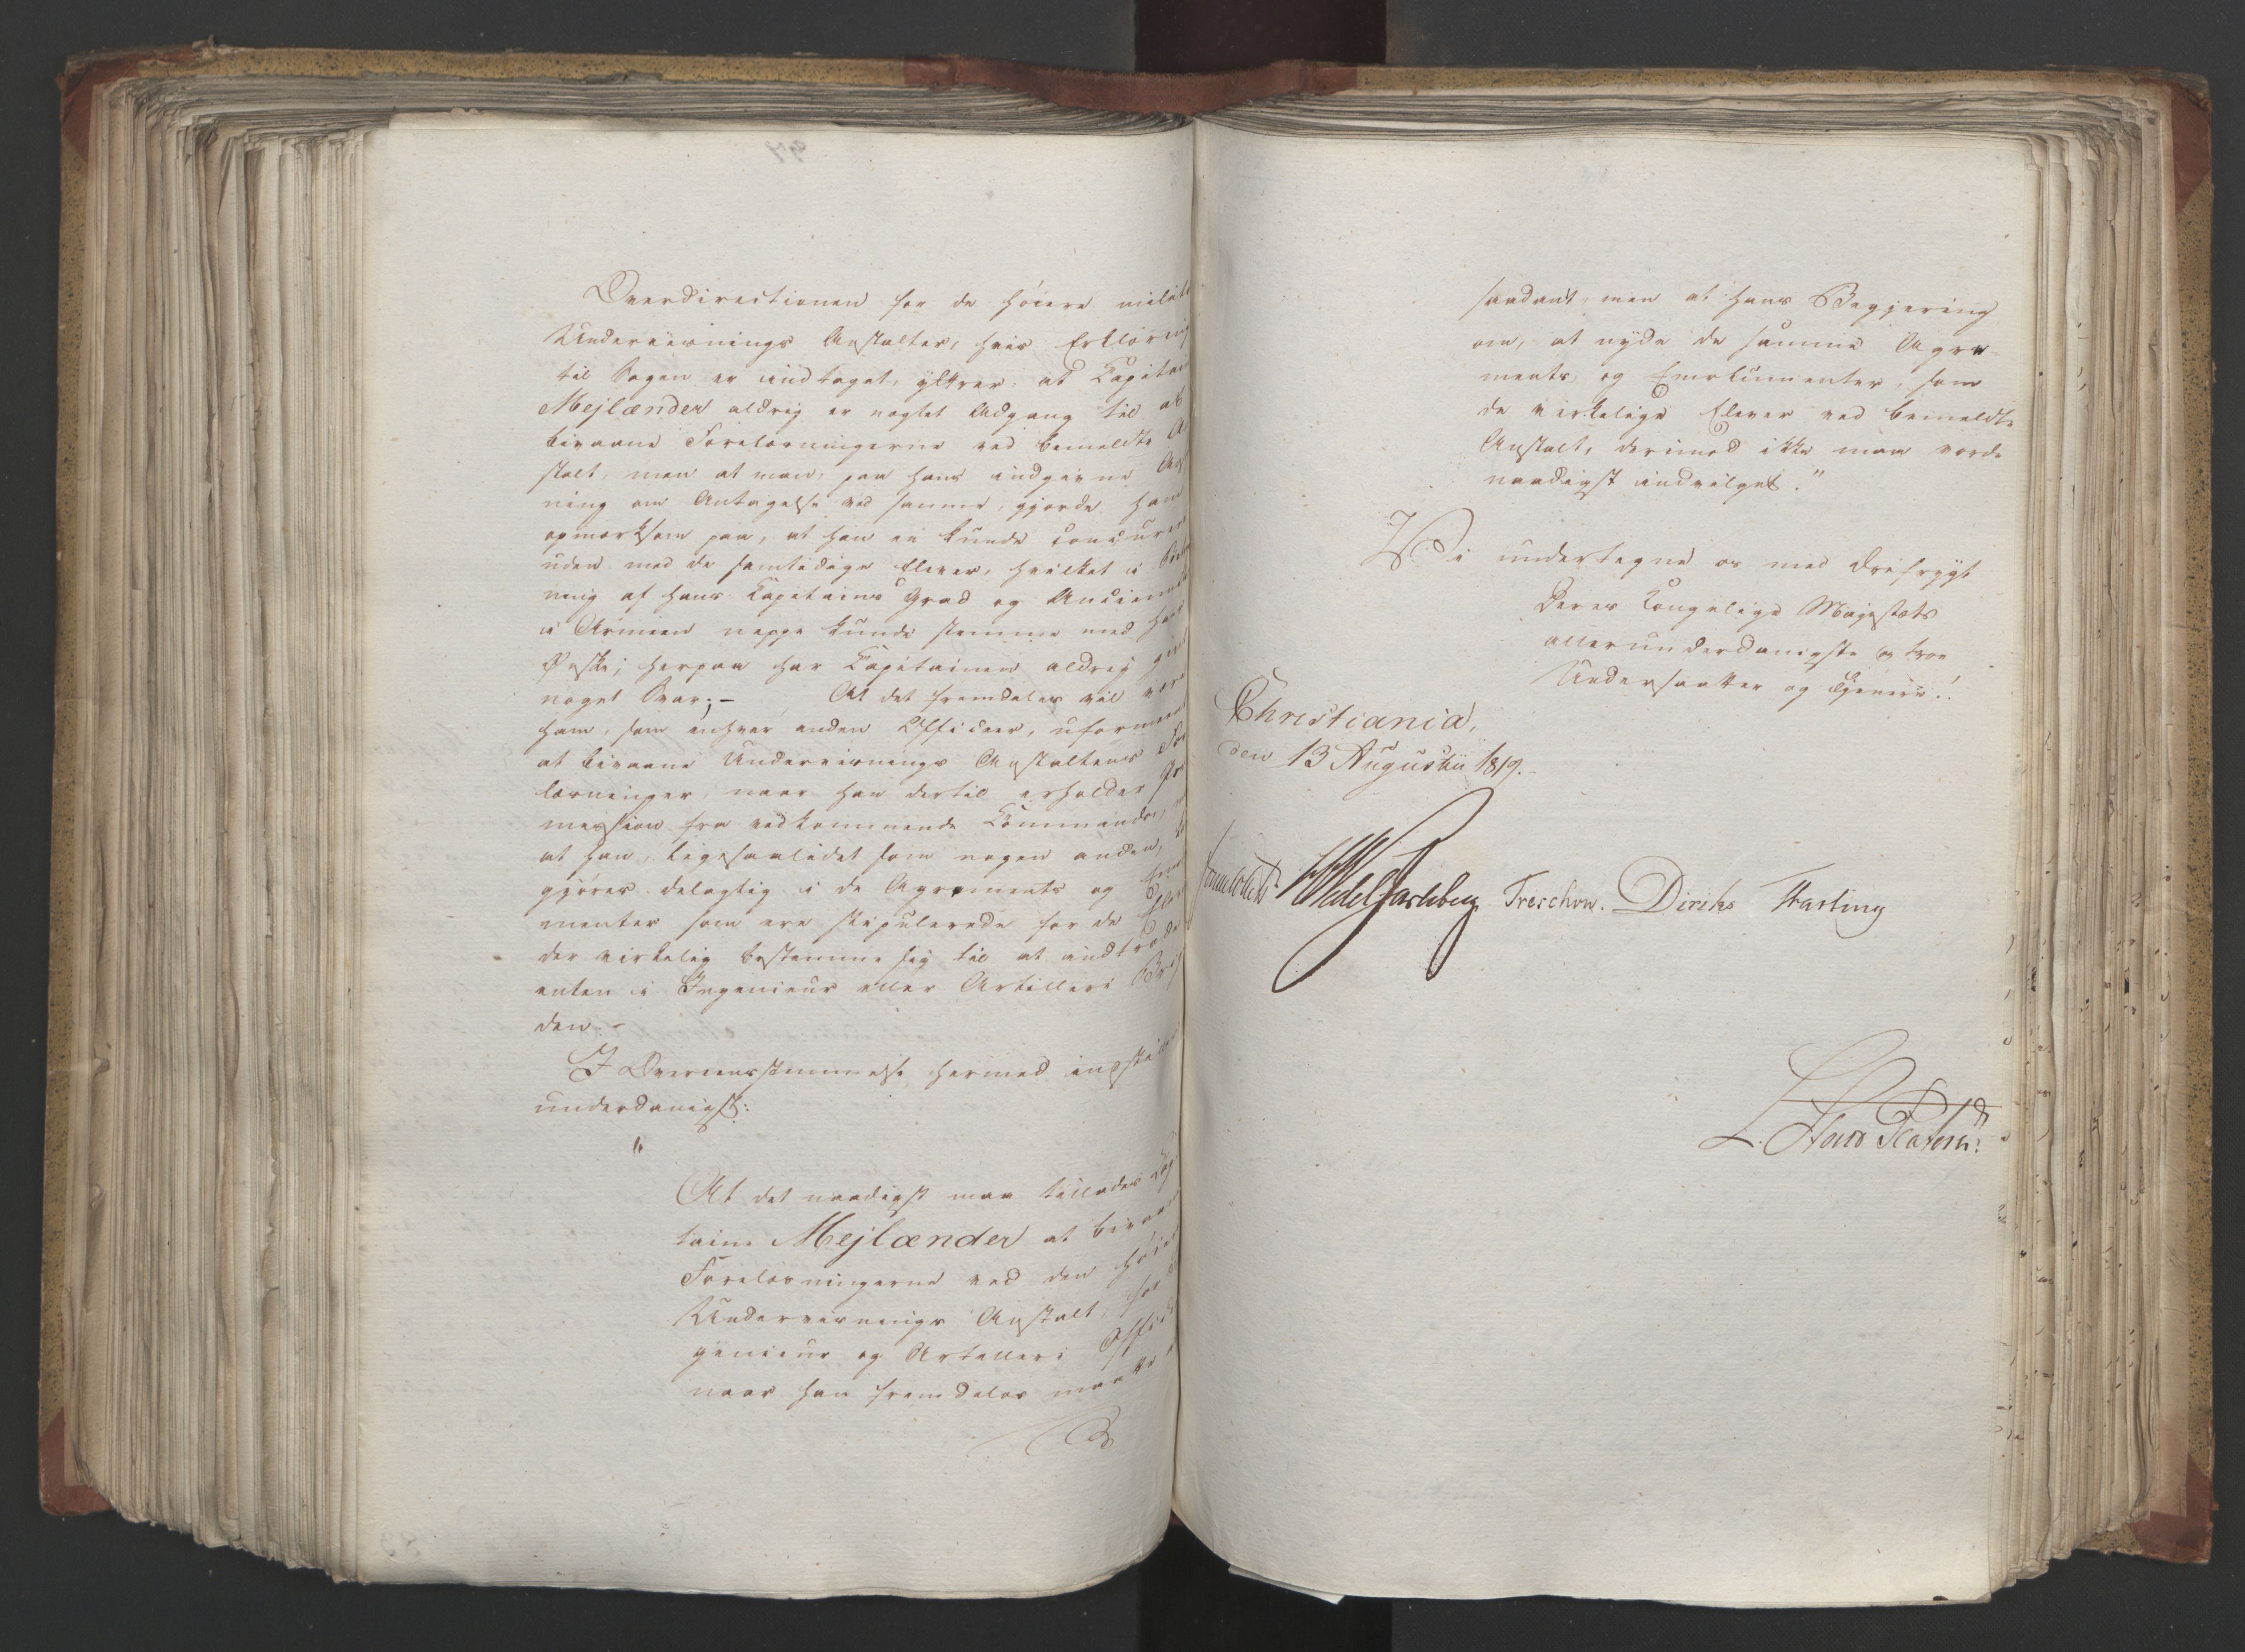 Overdirectionen for de høiere milit
Underviisnings Anstalter, hvis Erklæring
til Sagen er indtaget, yttrer, at Capitai
Mejlænder aldrig er nægtet Adgang til at
bivaane Forelæsningerne ved bemeldte A
stalt, men at man, paa hans indgivne Ans
ning om Antagelse ved samme, gjorde ham
opmærksom paa, at han ei kunde concurere
uden med de samtidige Elever, hvilket i
ning af hans Capitains Grad og Anciennit
i Armeen neppe kunde stemme med hans
Ønske; herpaa har Capitainen aldrig give
noget Svar; — At det fremdeles vil være
ham, som enhver anden Officeer, uformeent
at bivaane Underviisnings Anstaltens For
læsninger, naar han dertil erholder Per
mission fra vedkommende Commando,
at han, ligesaalidet som nogen anden,
gjøres delagtig i de Agrements og Emo
menter som ere stipulerede for de Elev
der virkelig bestemme sig til at indtræde
enten i Ingenieur eller Artilleri Brig
den. -
I Overeensstemmelse hermed indstilles
underdanigst:
"
At det naadigst maa tillades Capi
taine Mejlænder at bivaane
Forelæsningerne ved den høiere
Underviisnings Anstalt for
genieur og Artilleri Offic
naar han fremdeles maatte
saadant, men at hans Begjering
om, at nyde de samme Agre-
ments og Emolumenter, som
de virkelige Elever ved bemeldte
Anstalt, derimod ikke maa vorde
naadigst indvilget."
Vi undertegne os med Ærefrygt
Deres Kongelige Majestæts
allerunderdanigste og troe
Undersaatter og Tjenere!
Christiania,
den 13 Augustii 1819.
Sommerhielm HWedel Jarlsberg Treschow. Diriks Fasting
L. Stoud Platou